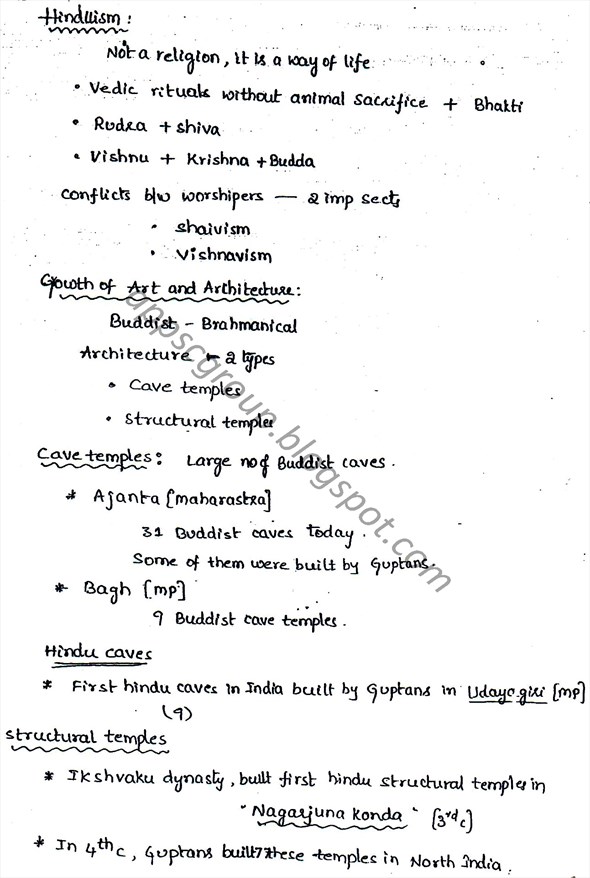 Hinduism :
Not a religion, it is a way of life
• Vedic rituals without animal sacrifice + Bhakti
• Rudra + shiva
• Vishnu + Krishna + Budda
conflicts b/w worshipers — 2 imp sects
• shaivism
• Vishnavism
Growth of Art and Architecture :
Buddist - Brahmanical
Architecture - 2 types
• Cave temples
• structural temples
Cave temples : Large no of Buddist caves.
* Ajanta [maharastra]
31 Buddist caves today.
Some of them were built by Guptans.
* Bagh [mp]
9 Buddist cave temples.
Hindu caves
* First hindu caves in India built by Guptans in Udayagiri [mp]
(9)
structural temples
* Ikshvaku dynasty, built first hindu structural temples in
"Nagarjuna konda" [3rd c]
* In 4th c, Guptans built these temples in North India.
appscgroup.blogspot.com